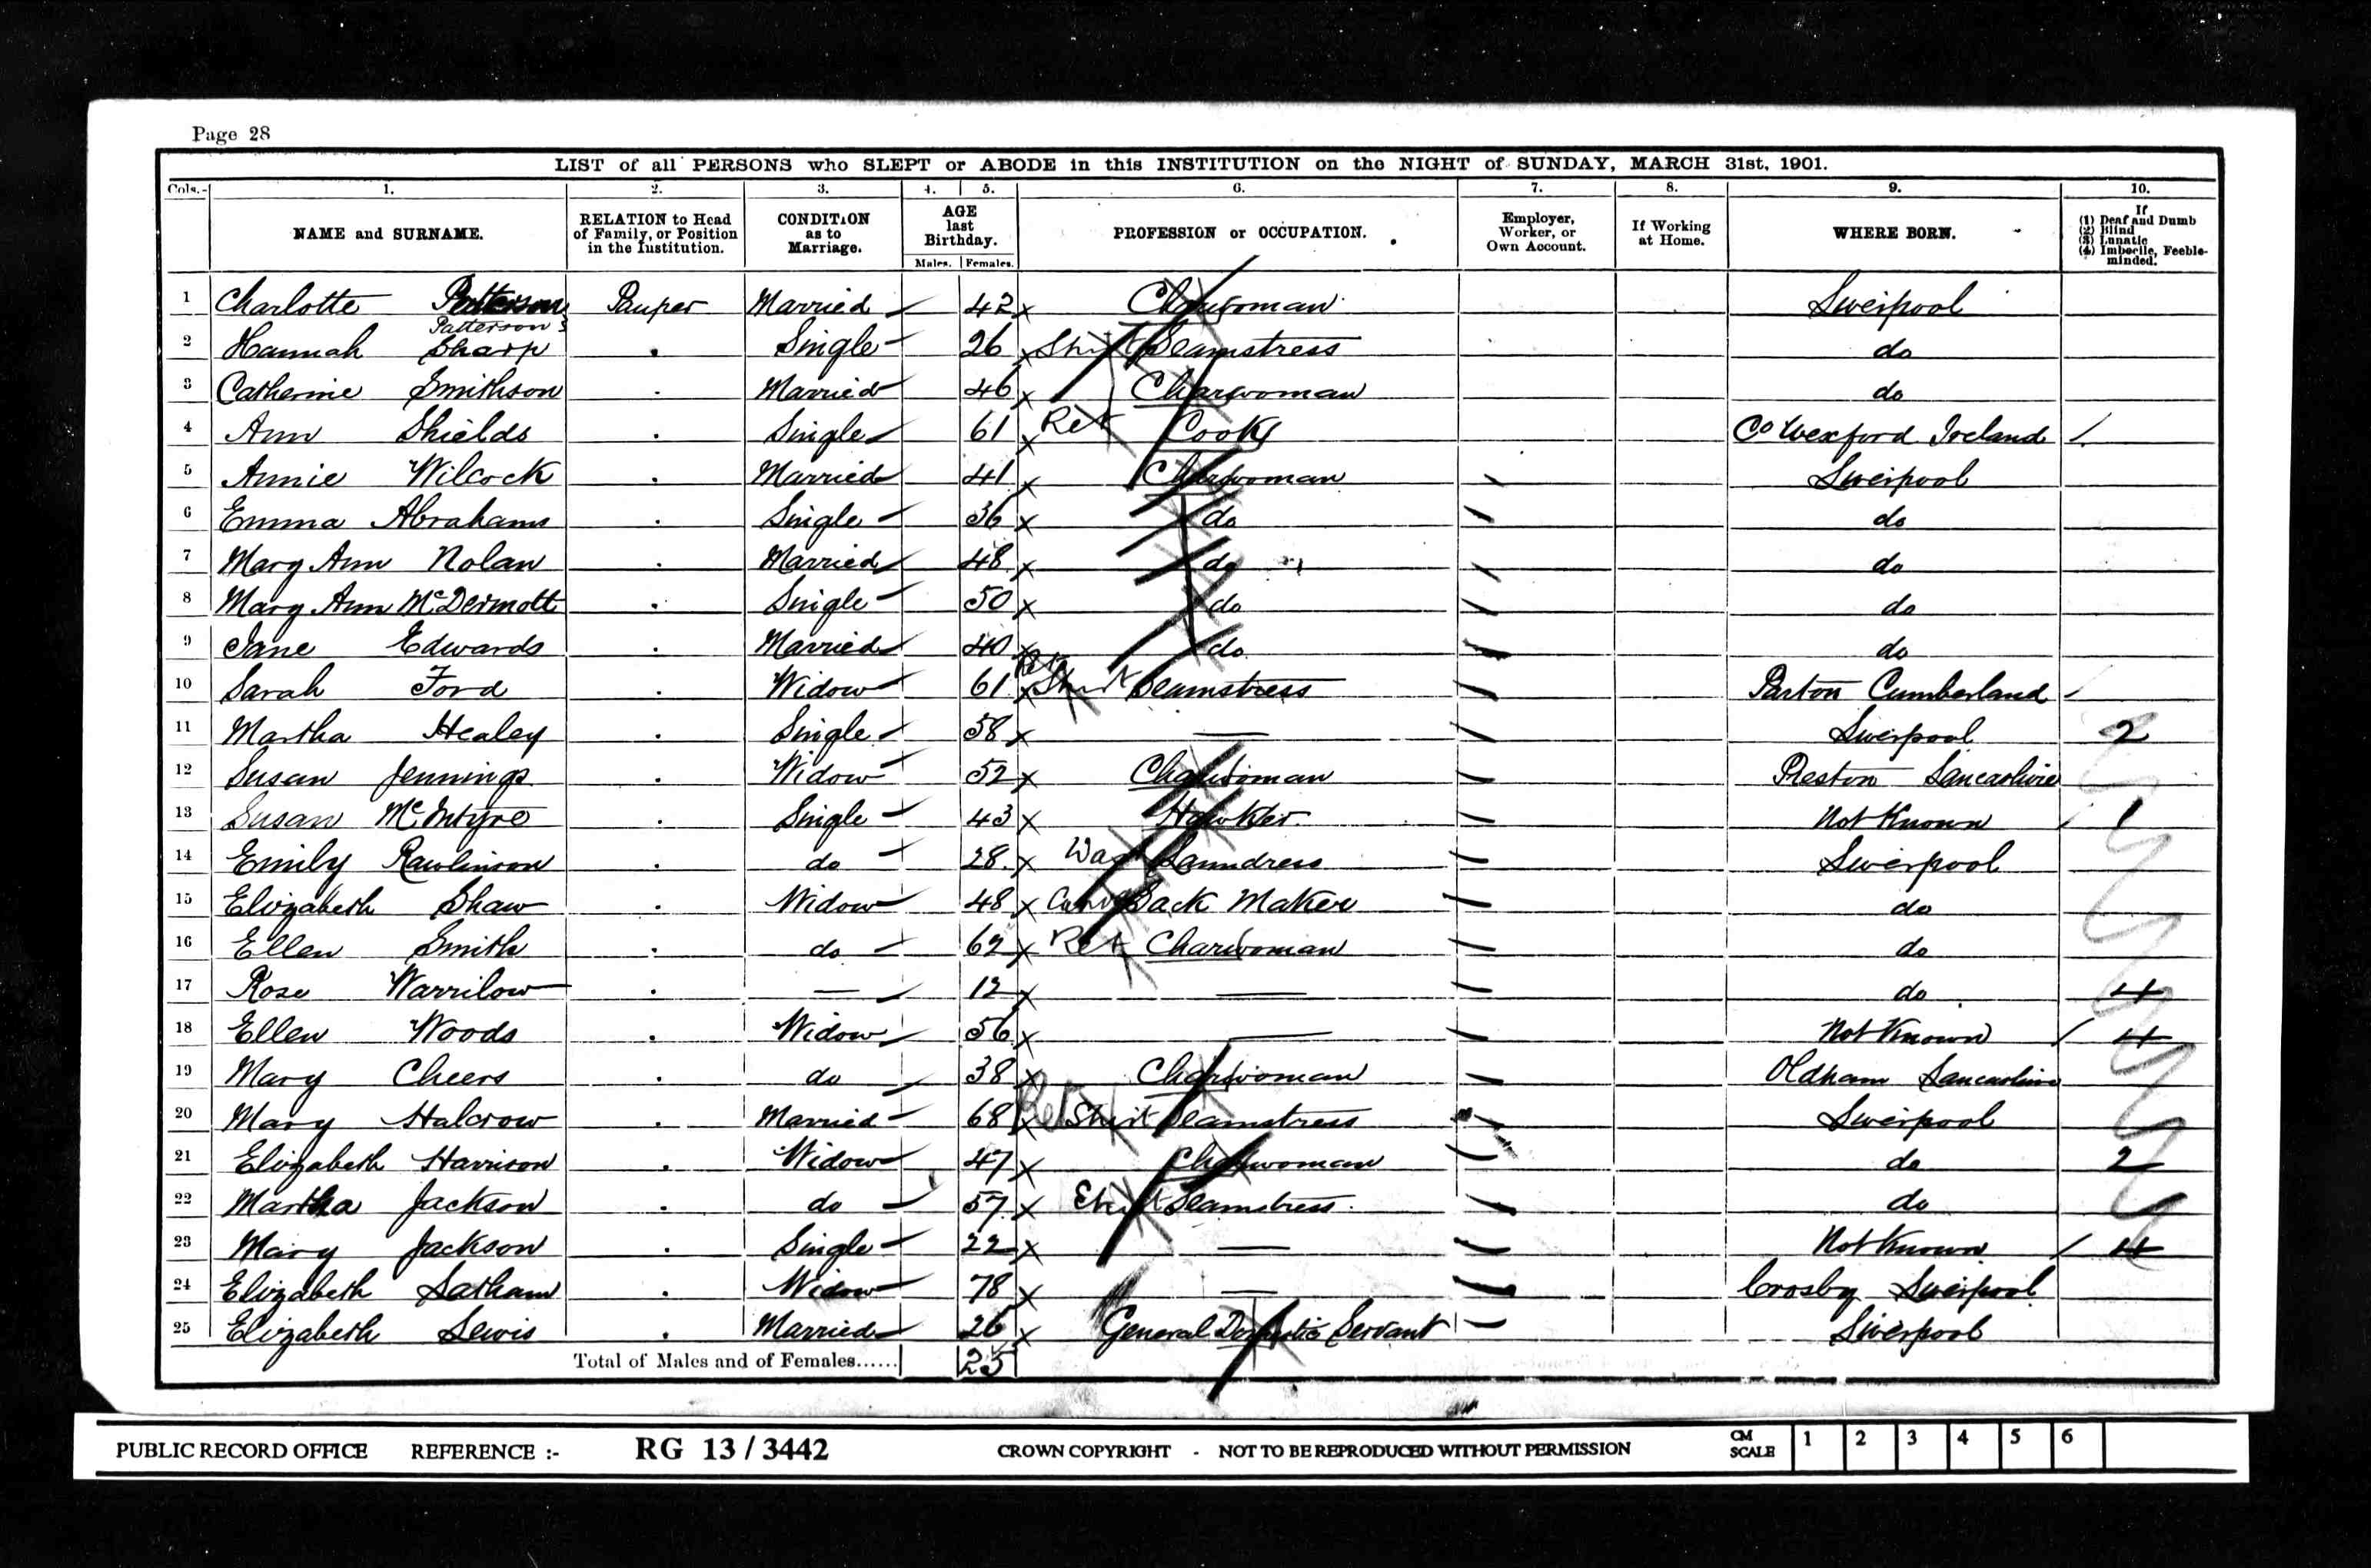 Page 28
LIST of all PERSONS who SLEPT or ABODE in this INSTITUTION on the NIGHT of SUNDAY, MARCH 31st, 1901.
Cols.- 1. 2. 3. 4. 5. 6. 7. 8. 9. 10.
NAME and SURNAME. RELATION to Head of Family, or Position in the Institution. CONDITION as to Marriage. AGE last Birthday. Males. Females. PROFESSION or OCCUPATION. Employer, Worker, or Own Account. If Working at Home. WHERE BORN. If (1) Deaf and Dumb (2) Blind (3) Lunatic (4) Imbecile, Feeble-minded.
1 Charlotte Patterson Pauper Married 42 x Charwoman Liverpool
Patterson
2 Hannah Sharp Single 26 x Shirt Seamstress do
3 Catherine Smithson Married 46 x Charwoman do
4 Ann Shields Single 61 x Ret Cook Co Wexford Ireland
5 Annie Wilcock Married 41 x Charwoman Liverpool
6 Emma Abrahams Single 36 x do do
7 Mary Ann Nolan Married 48 x do do
8 Mary Ann McDermott Single 50 x do do
9 Jane Edwards Married 40 x do do
10 Sarah Ford Widow 61 x Ret Shirt Seamstress Parton Cumberland
11 Martha Healey Single 58 x — Liverpool 2
12 Susan Jennings Widow 52 x Charwoman Preston Lancashire
13 Susan McIntyre Single 43 x Hawker Not Known 1
14 Emily Rawlinson do 28 x Wash Laundress Liverpool
15 Elizabeth Shaw Widow 48 x Sack Maker do
16 Ellen Smith do 62 x Ret Charwoman do
17 Rose Warrilow — 12 x — do 4
18 Ellen Woods Widow 56 x — Not Known 4
19 Mary Cheers do 38 x Charwoman Oldham Lancashire
20 Mary Halcrow Married 68 x Ret Shirt Seamstress Liverpool
21 Elizabeth Harrison Widow 47 x Charwoman do 2
22 Martha Jackson do 57 x Seamstress do
23 Mary Jackson Single 22 x — Not Known 4
24 Elizabeth Latham Widow 78 x — Crosby Liverpool
25 Elizabeth Lewis Married 26 x General Domestic Servant Liverpool
Total of Males and of Females...... 25
PUBLIC RECORD OFFICE REFERENCE :- RG 13 / 3442 CROWN COPYRIGHT - NOT TO BE REPRODUCED WITHOUT PERMISSION CM SCALE 1 2 3 4 5 6